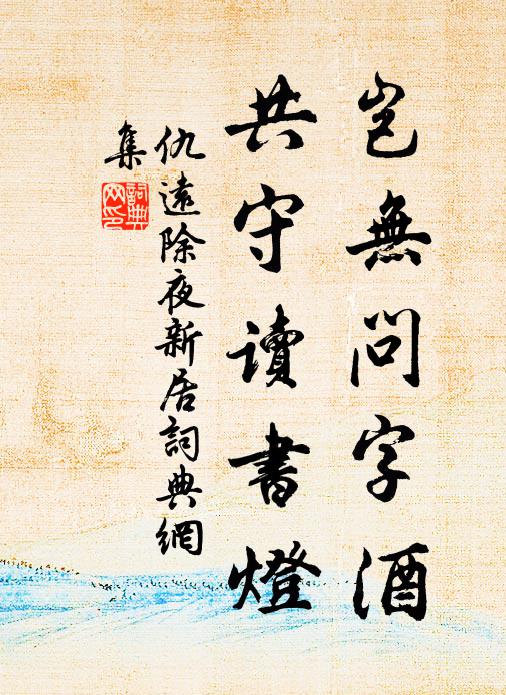 豈無問字酒
共守讀書燈
仇遠除夜新居詞典網
集
詞典
网印